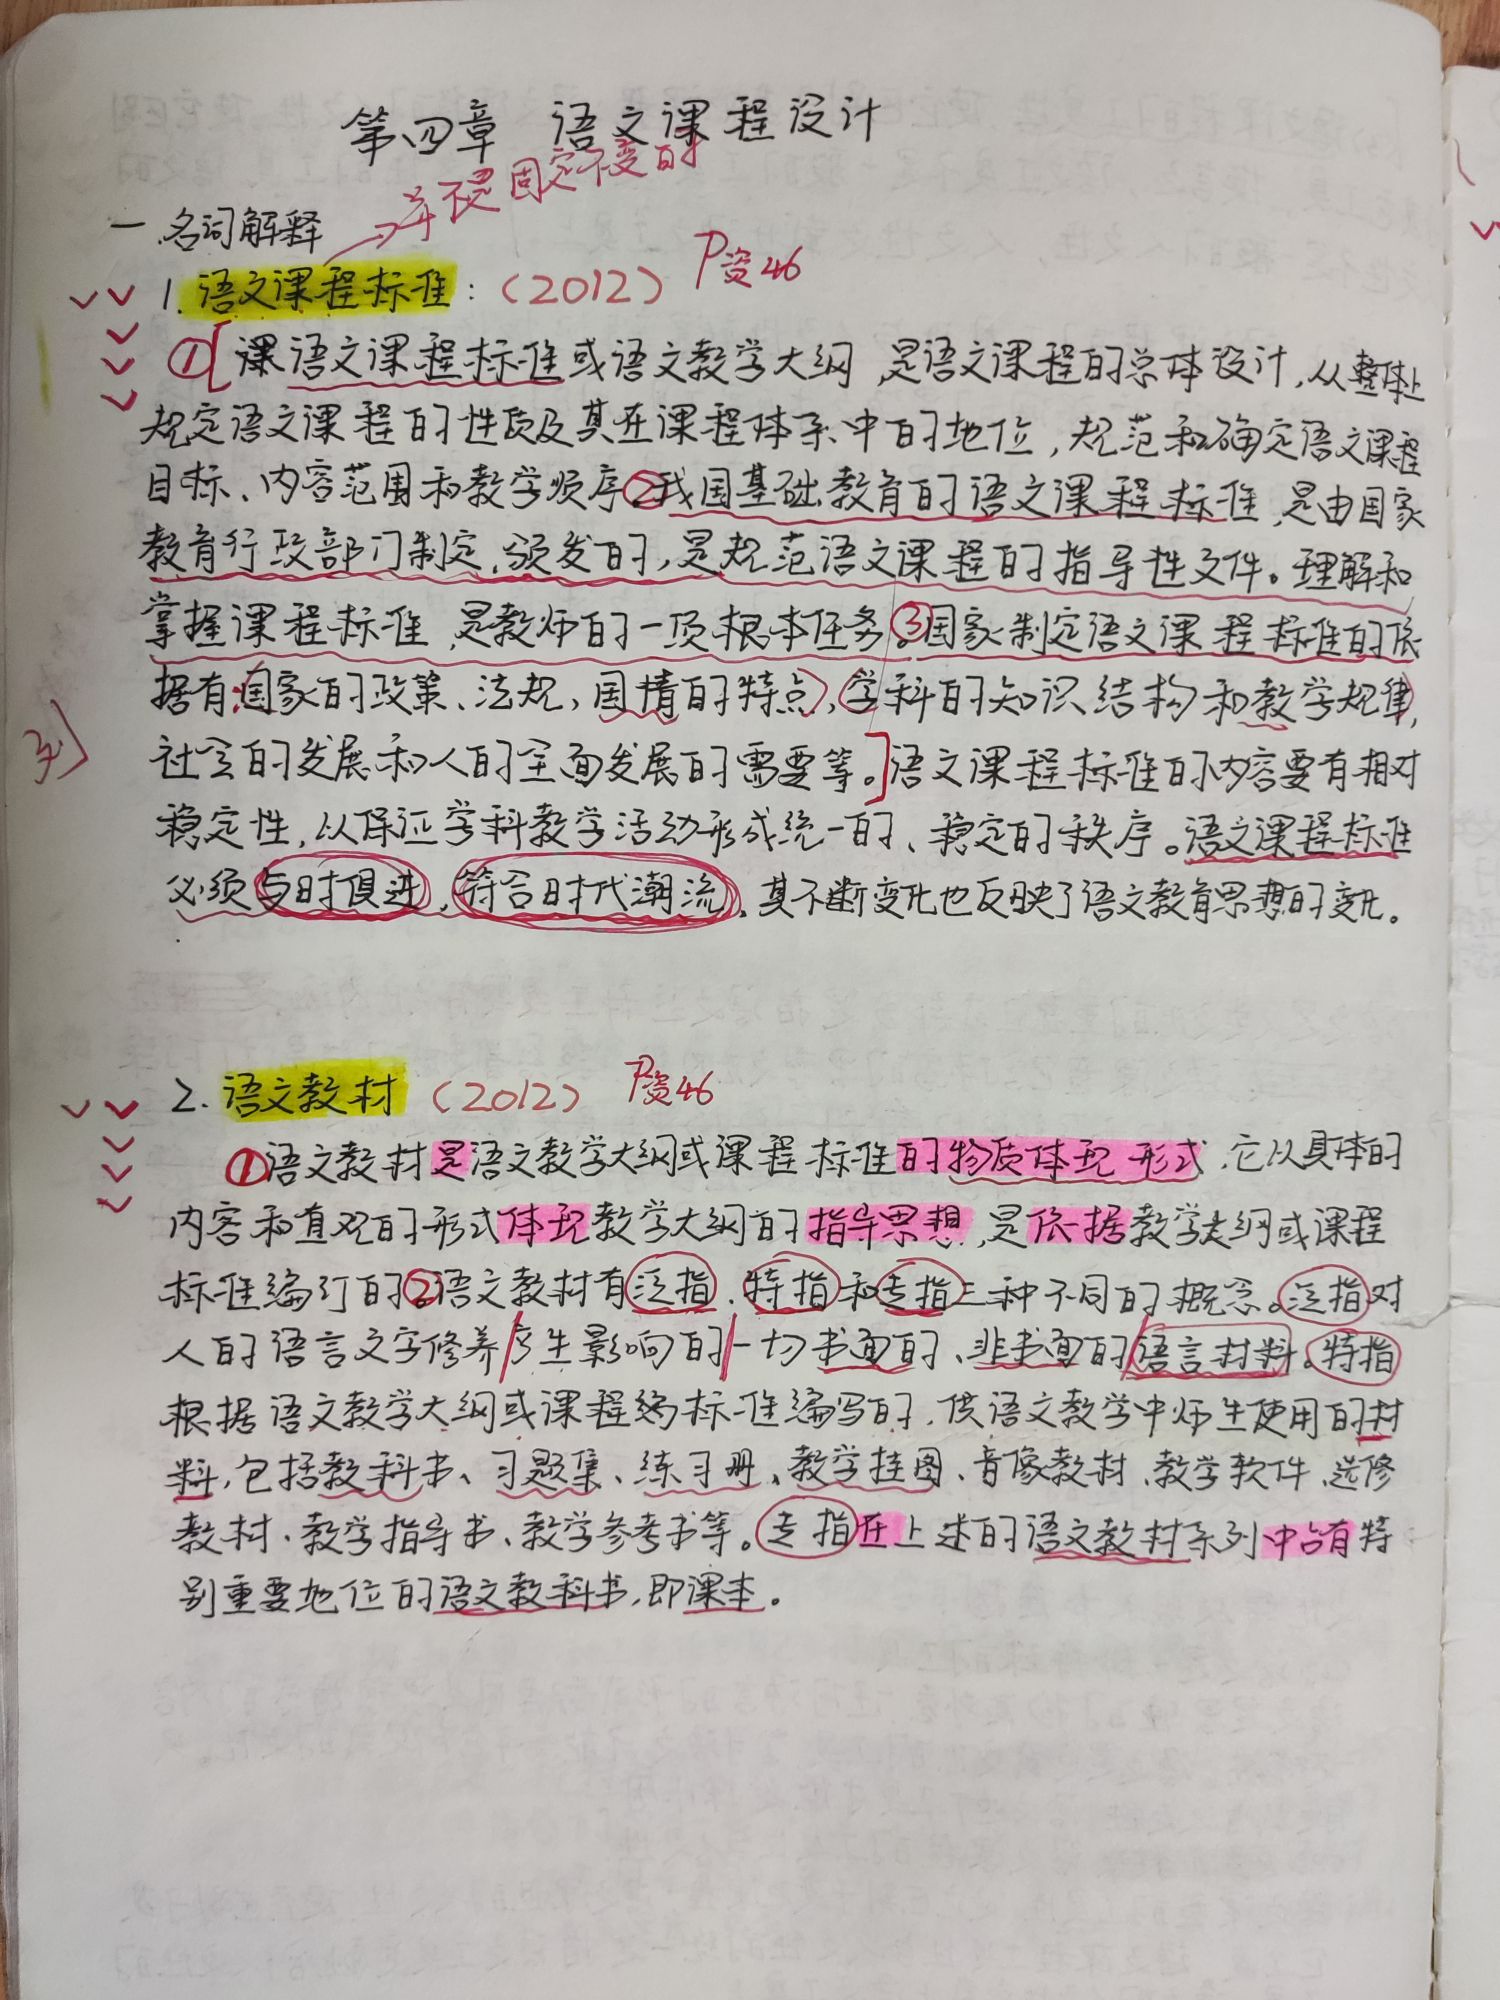 第四章 语文课程设计
→并不是固定不变的
一.名词解释
1.语文课程标准：（2012） P资46
①[课语文课程标准或语文教学大纲，是语文课程的总体设计，从整体上
规定语文课程的性质及其在课程体系中的地位，规范和确定语文课程
目标、内容范围和教学顺序②我国基础教育的语文课程标准，是由国家
教育行政部门制定、颁发的，是规范语文课程的指导性文件。理解和
掌握课程标准，是教师的一项根本任务。③国家制定语文课程标准的依
据有：国家的政策、法规，国情的特点，学科的知识结构和教学规律，
社会的发展和人的全面发展的需要等。]语文课程标准的内容要有相对
稳定性，以保证学科教学活动形成统一的、稳定的秩序。语文课程标准
必须与时俱进，符合时代潮流，其不断变化也反映了语文教育思想的变化。
2.语文教材（2012） P资46
①语文教材是语文教学大纲或课程标准的物质体现形式，它以具体的
内容和直观的形式体现教学大纲的指导思想，是依据教学大纲或课程
标准编订的②语文教材有泛指、特指和专指三种不同的概念。泛指对
人的语言文字修养/产生影响的/一切书面的、非书面的/语言材料。特指
根据语文教学大纲或课程标准编写的，供语文教学中师生使用的材
料，包括教科书、习题集、练习册、教学挂图、音像教材、教学软件、选修
教材、教学指导书、教学参考书等。专指在上述的语文教材系列中占有特
别重要地位的语文教科书，即课本。